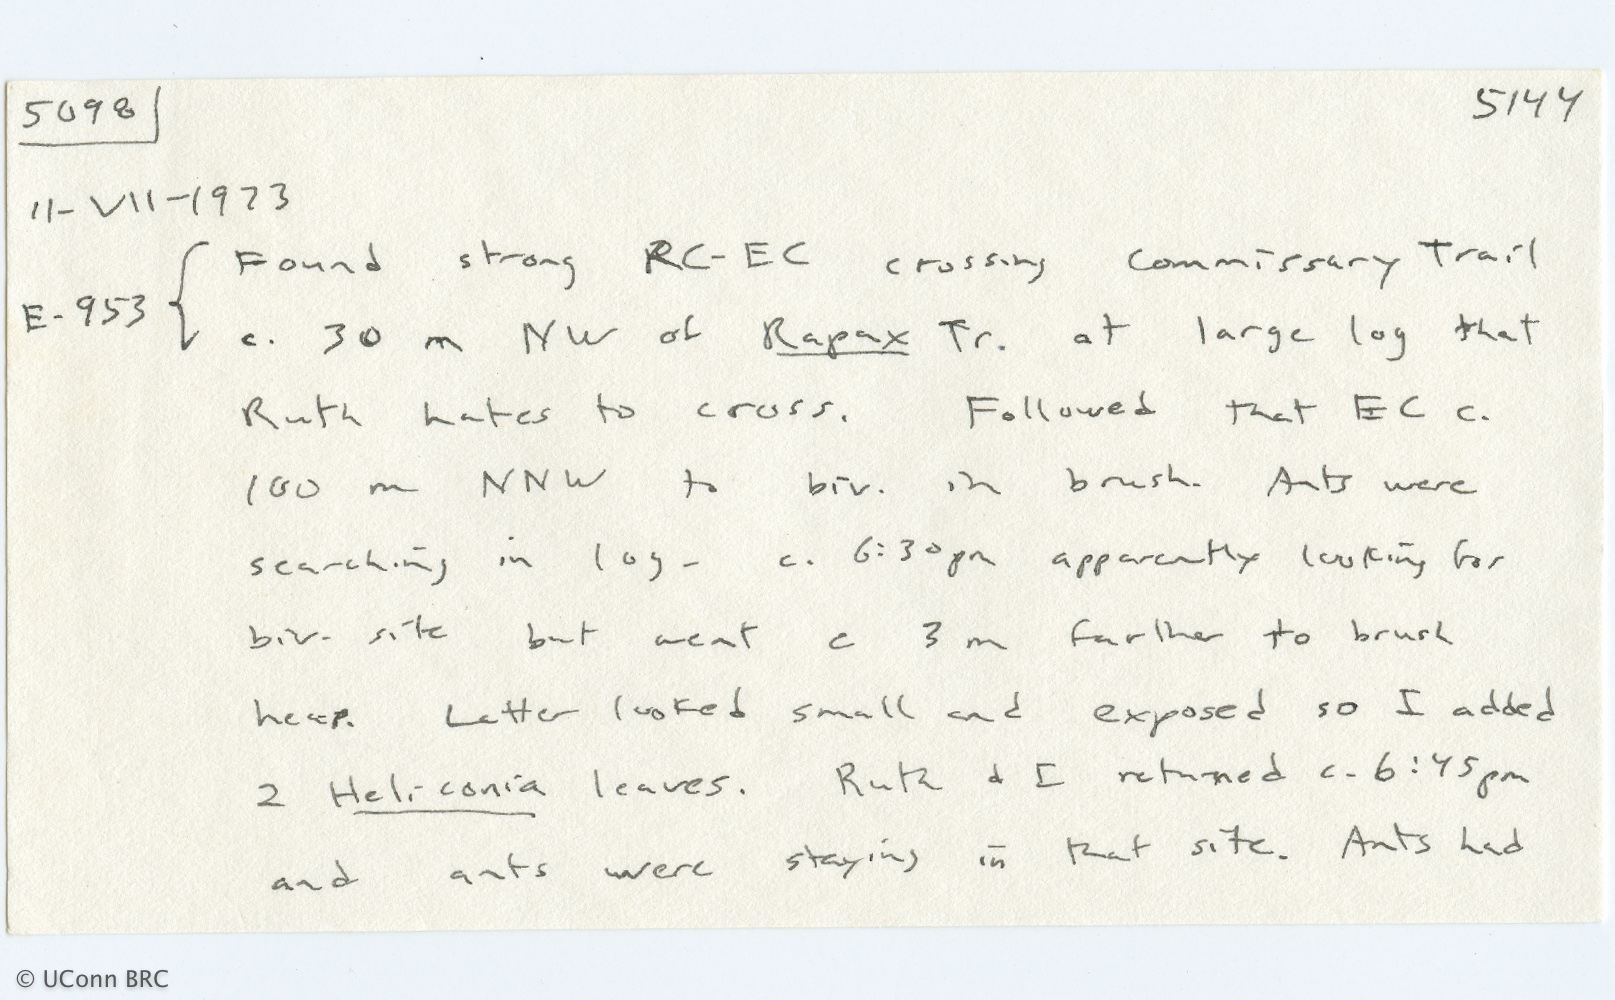 5098 5144
11-VII-1973
Found strong RC-EC crossing Commissary Trail
E-953 c. 30 m NW of Rapax Tr. at large log that
Ruth hates to cross. Followed that EC c.
100 m NNW to biv. in brush. Ants were
searching in log - c. 6:30pm apparently looking for
biv. site but went c 3 m farther to brush
heap. Latter looked small and exposed so I added
2 Heliconia leaves. Ruth & I returned c. 6:45pm
and ants were staying in that site. Ants had
© UConn BRC